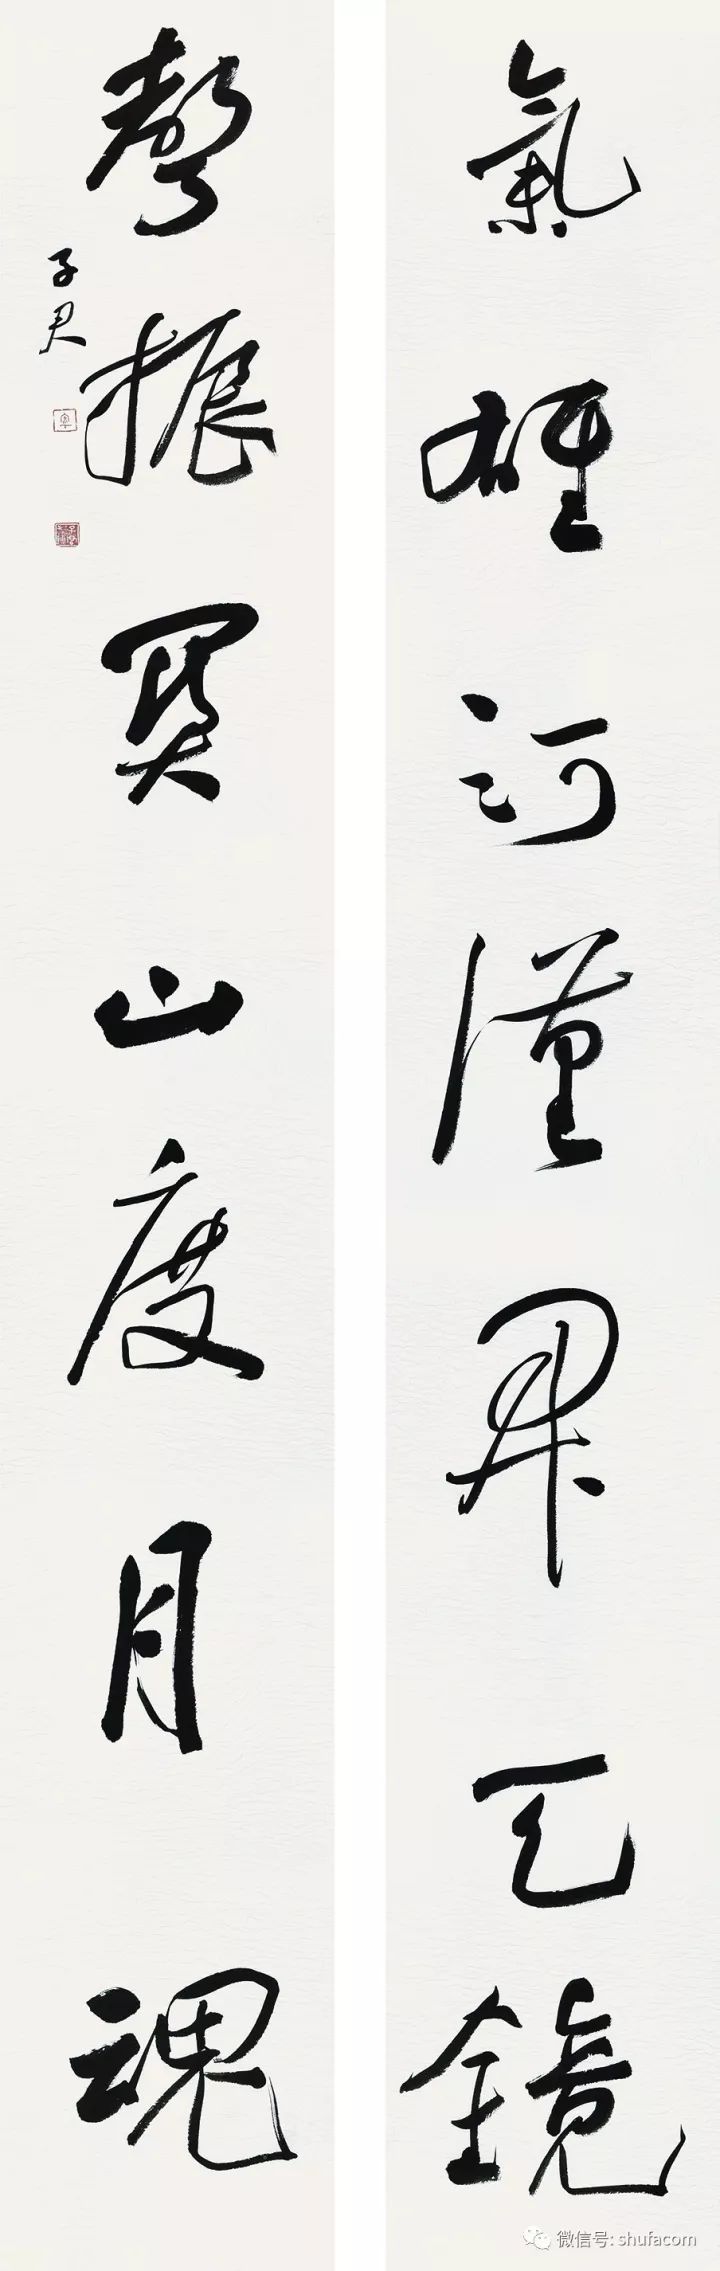 氣雄河漢開天鏡
聲振關山度月魂
子君
微信号: shufacom